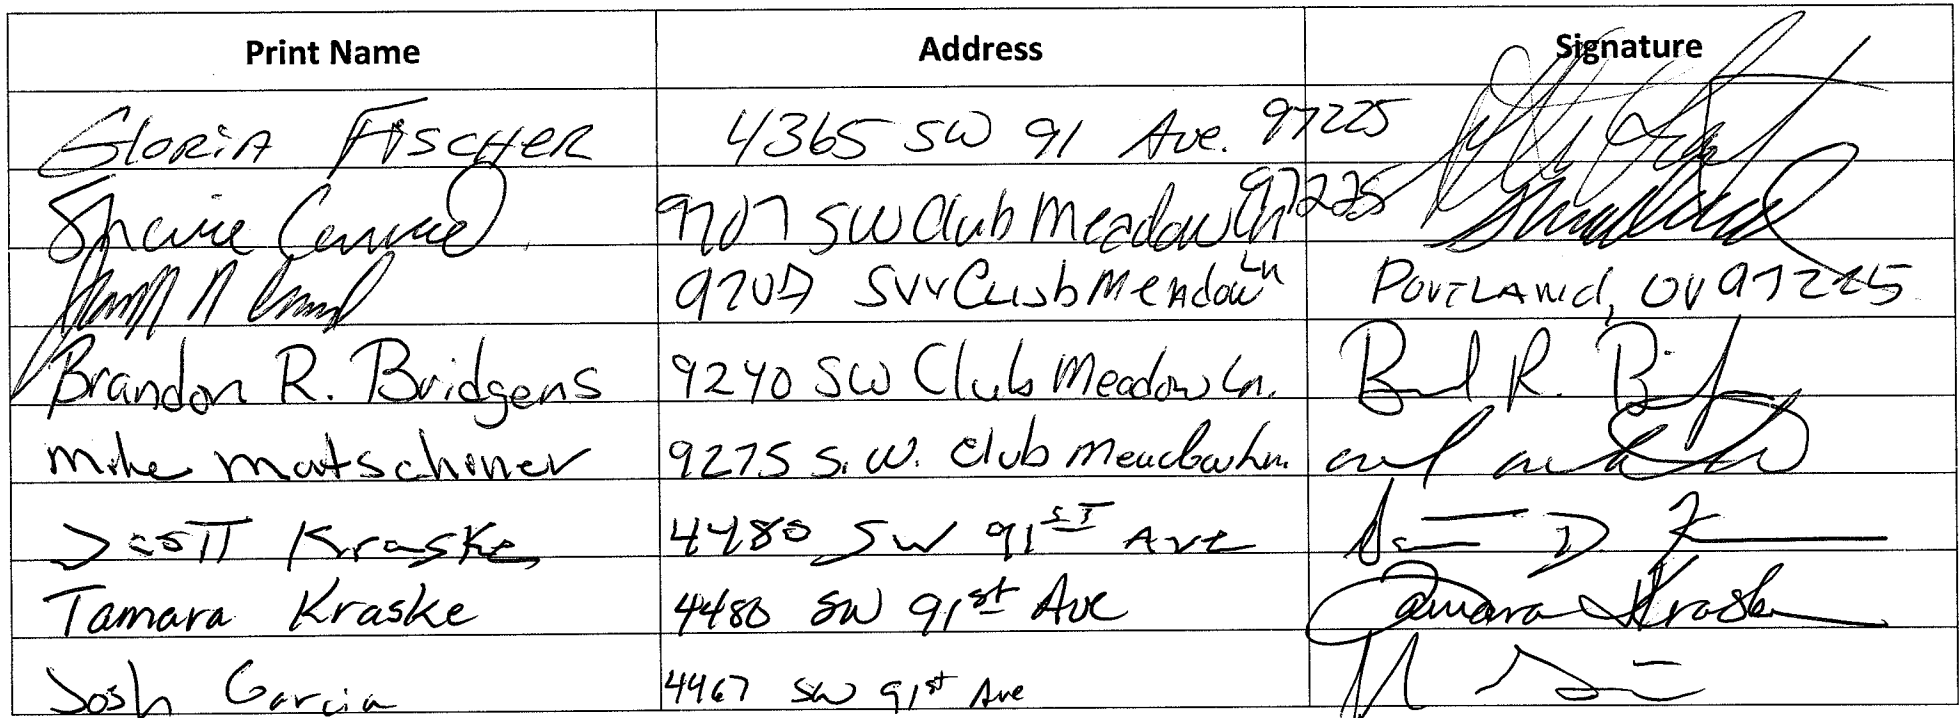 Print Name Address Signature
Gloria Fischer 4365 SW 91 Ave. 97225
9707 SW Club Meadow Ln 97225
9707 SW Club Meadow Ln Portland, OR 97225
Brandon R. Bridgens 9240 SW Club Meadow Ln. R.
Mike Matschiner 9275 S.W. Club Meadow Ln.
Scott Kraske 4480 SW 91ST Ave D
Tamara Kraske 4480 SW 91st Ave Tamara Kraske
Josh Garcia 4467 SW 91st Ave